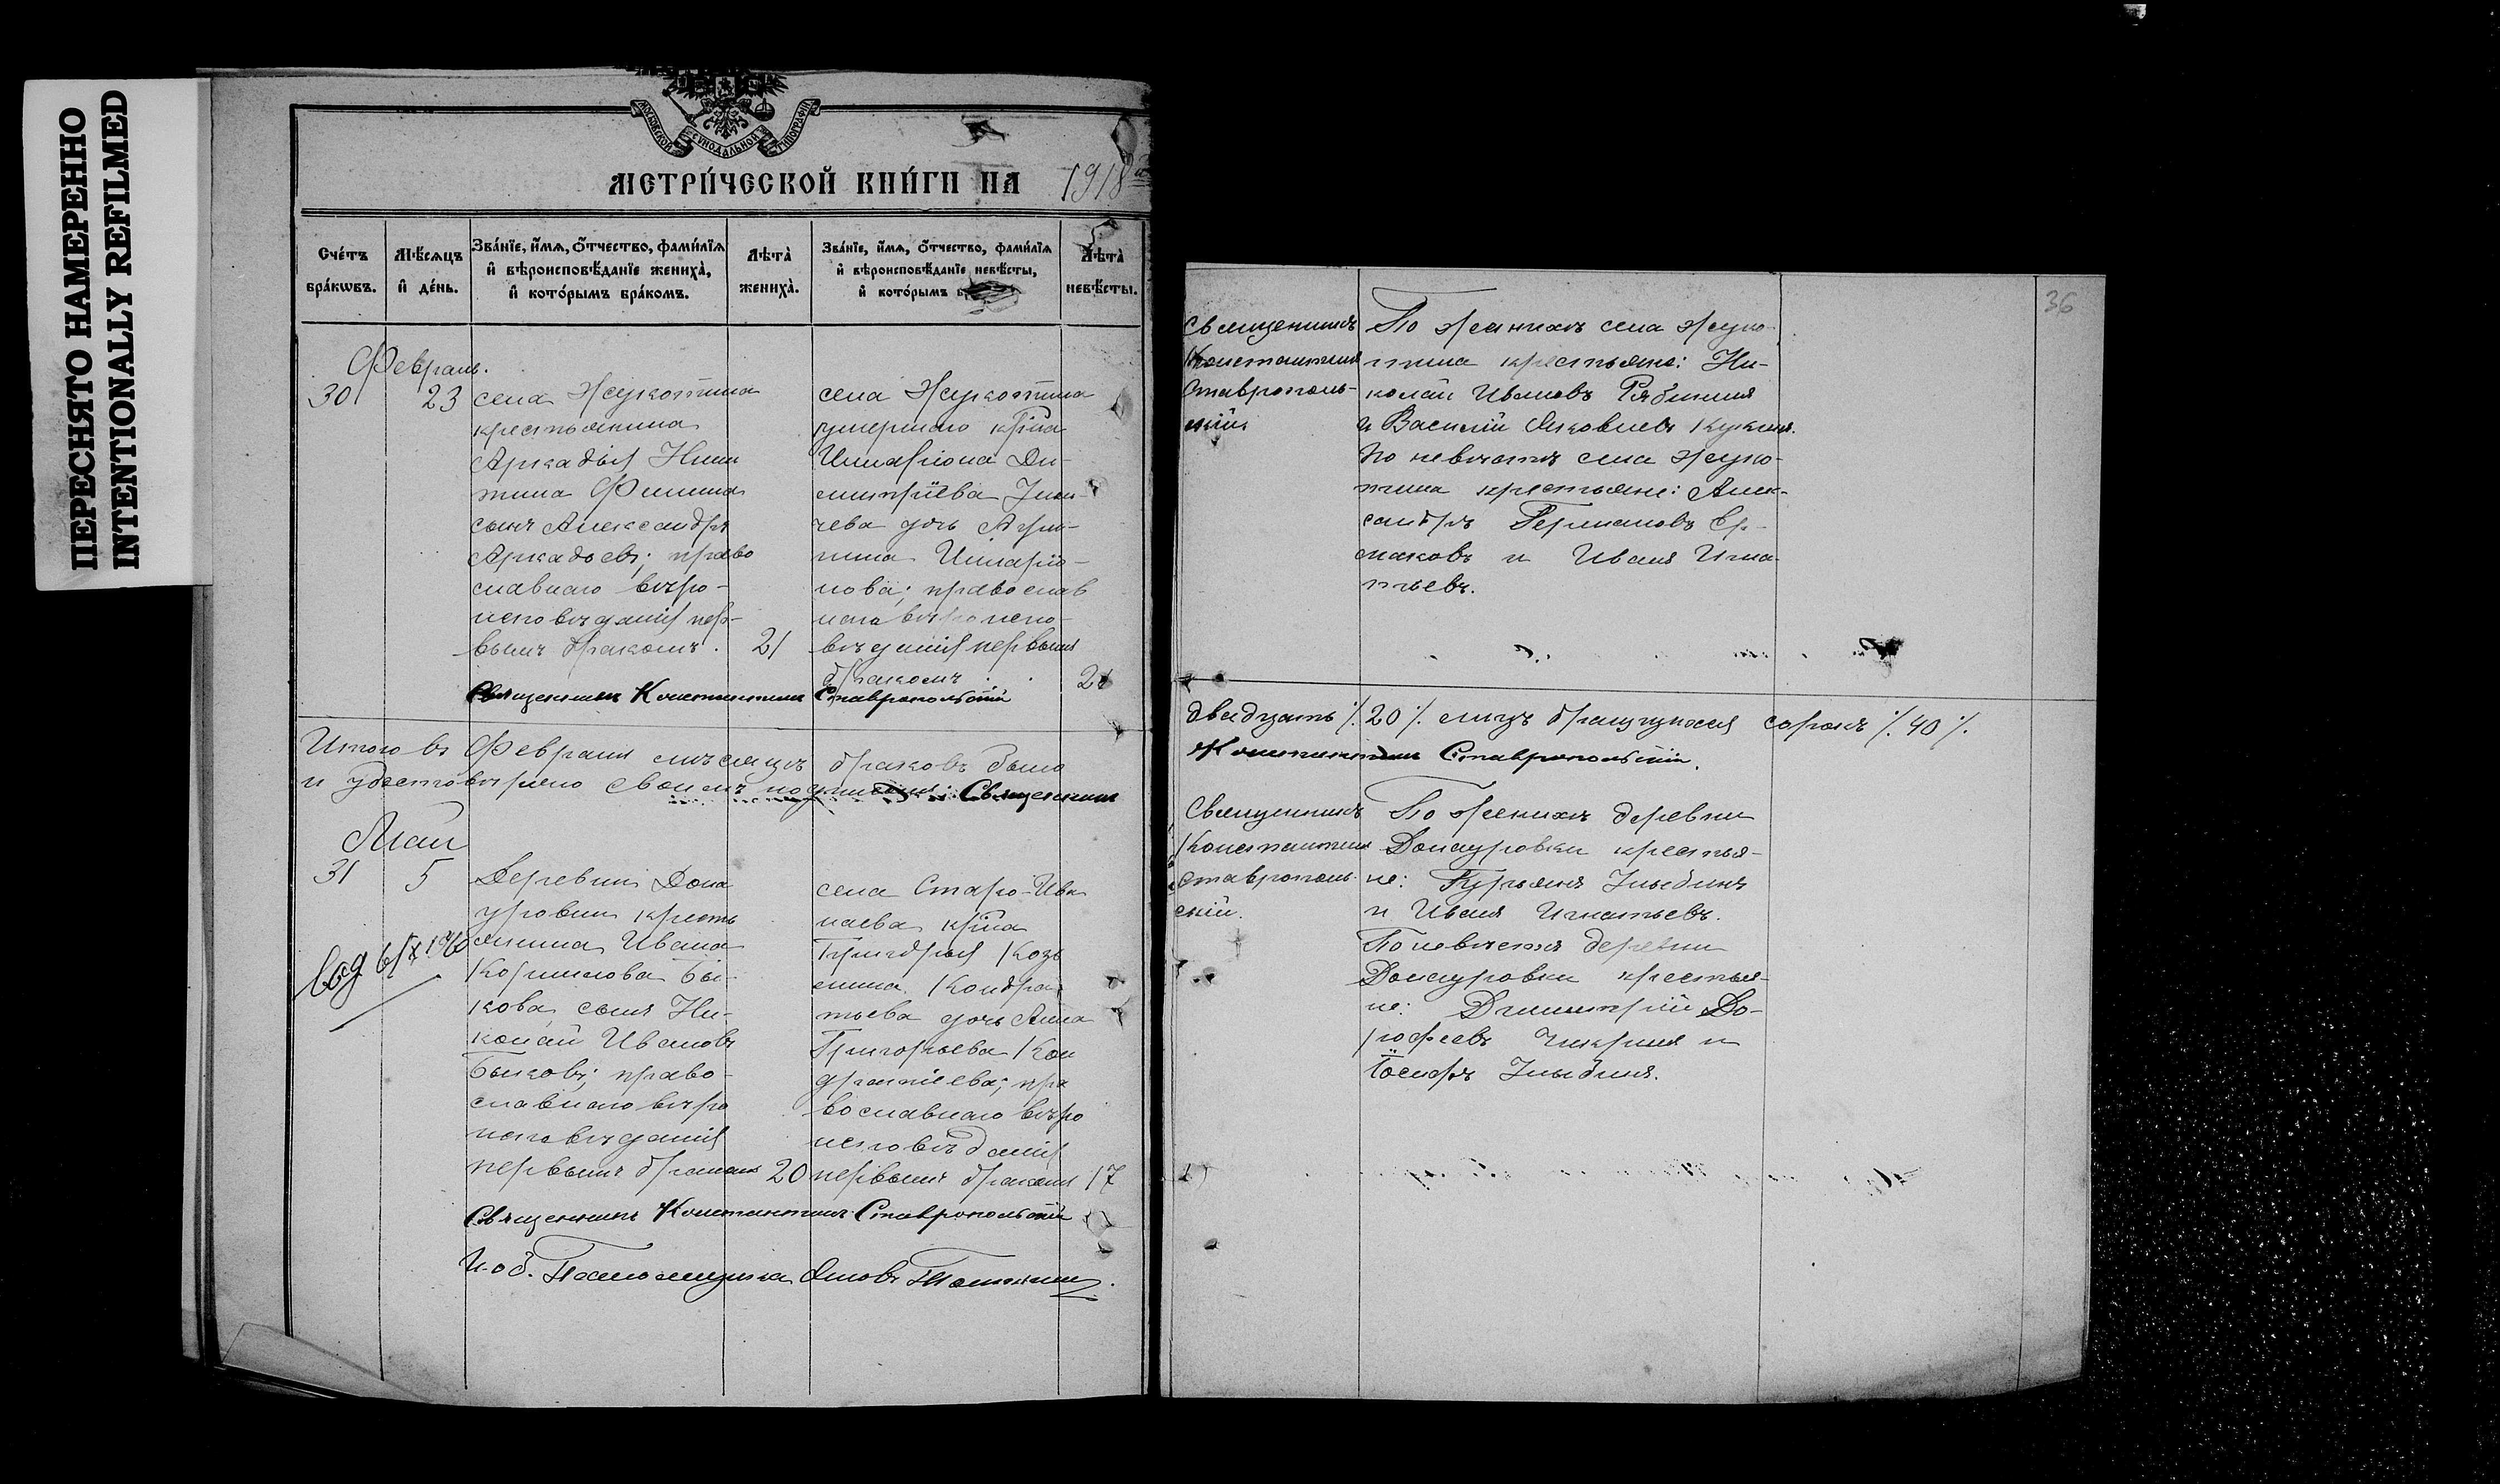 ПЕРЕСНЯТО НАМЕРЕННО
INTENTIONALLY REFILMED
МОСКОВСКОЙ СѴНОДАЛЬНОЙ ТИПОГРАФІИ
МЕТРИ́ЧЕСКОЙ КНИ́ГИ НА 1918
Сче́тъ бра́кωвъ.
Мѣ́сѧцъ и҆ де́нь.
Зва́нїе, и҆́мѧ, ѻ҆́тчество, фами́лїѧ
и҆ вѣроисповѣ́данїе жениха̀,
и҆ кото́рымъ бра́комъ.
Лѣта̀
жениха̀.
Зва́нїе, и҆́мѧ, ѻ҆́тчество, фами́лїѧ
и҆ вѣроисповѣ́данїе невѣ́сты,
и҆ кото́рымъ
Лѣта̀
невѣ́сты.
Февраль.
30 23
села Жукотина
крестьянина
Аркадія Ники
тина Филина
сынъ Александръ
Аркадьевъ; право
славнаго вѣро-
исповѣданія пер-
вымъ бракомъ. 21
села Жукотина
умершаго кр̃ина
Илларіона Ди-
митріева
чева дочь
Илларіо-
нова; православ
наго вѣроиспо-
вѣданія первымъ
бракомъ. 21
Священникъ Константинъ Ставропольскій
Итого въ Февралѣ мѣсяцѣ браковъ было
и удостовѣрено своимъ подписомъ: Священникъ
Май
31 5
Деревни Дома
уровки кресть
янина Ивана
Корнилова Бы-
кова, сынъ Ни-
колай Ивановъ
Быковъ; право-
славнаго вѣро
исповѣданія
первымъ бракомъ 20
села Старо-Ива
паева кр̃ина
Григорія Козь
мина Кондра-
тьева дочь Анна
Григорьева Кон
дратіева; пра
вославнаго вѣро
исповѣданія
первымъ бракомъ 17
Священникъ Константинъ Ставропольскій
И. об.
36
Священникъ
Константинъ
Ставрополь-
скій
По женихѣ села Жуко-
тина крестьяне: Ни-
колай Ивановъ Рябининъ
и Василій Яковлевъ Кукинъ.
По невѣстѣ села Жуко-
тина крестьяне: Алек-
сандръ Германовъ Ер-
маковъ и Иванъ Игна-
тьевъ.
двадцать /.20/. лицъ брачущихся сорокъ /.40/.
Константинъ Ставропольскій.
Священникъ
Константинъ
Ставрополь-
скій.
По женихѣ деревни
Домауровки крестья-
не: Гурьянъ
и Иванъ Игнатьевъ.
По невѣстѣ деревни
Домауровки крестья-
не: Димитрій До-
рофеевъ и
Іосифъ